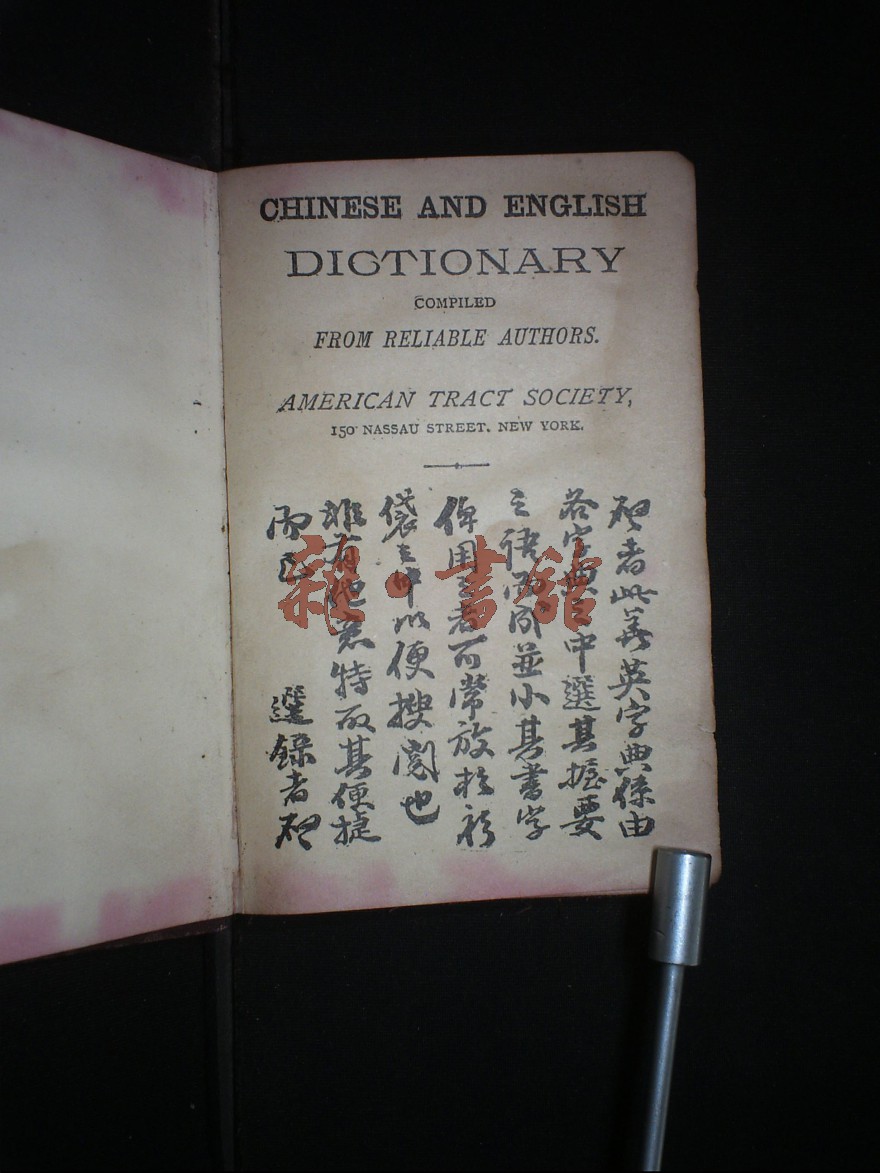 CHINESE AND ENGLISH
DICTIONARY
COMPILED
FROM RELIABLE AUTHORS.
AMERICAN TRACT SOCIETY,
150 NASSAU STREET, NEW YORK.
啓者此華英字典係由
各字典之中選其握要
之語而成並小其書字
俾用之者可常放於衫
袋之中以便搜閱也
有他意特取其便捷
而已 選錄者啓
雜·書館